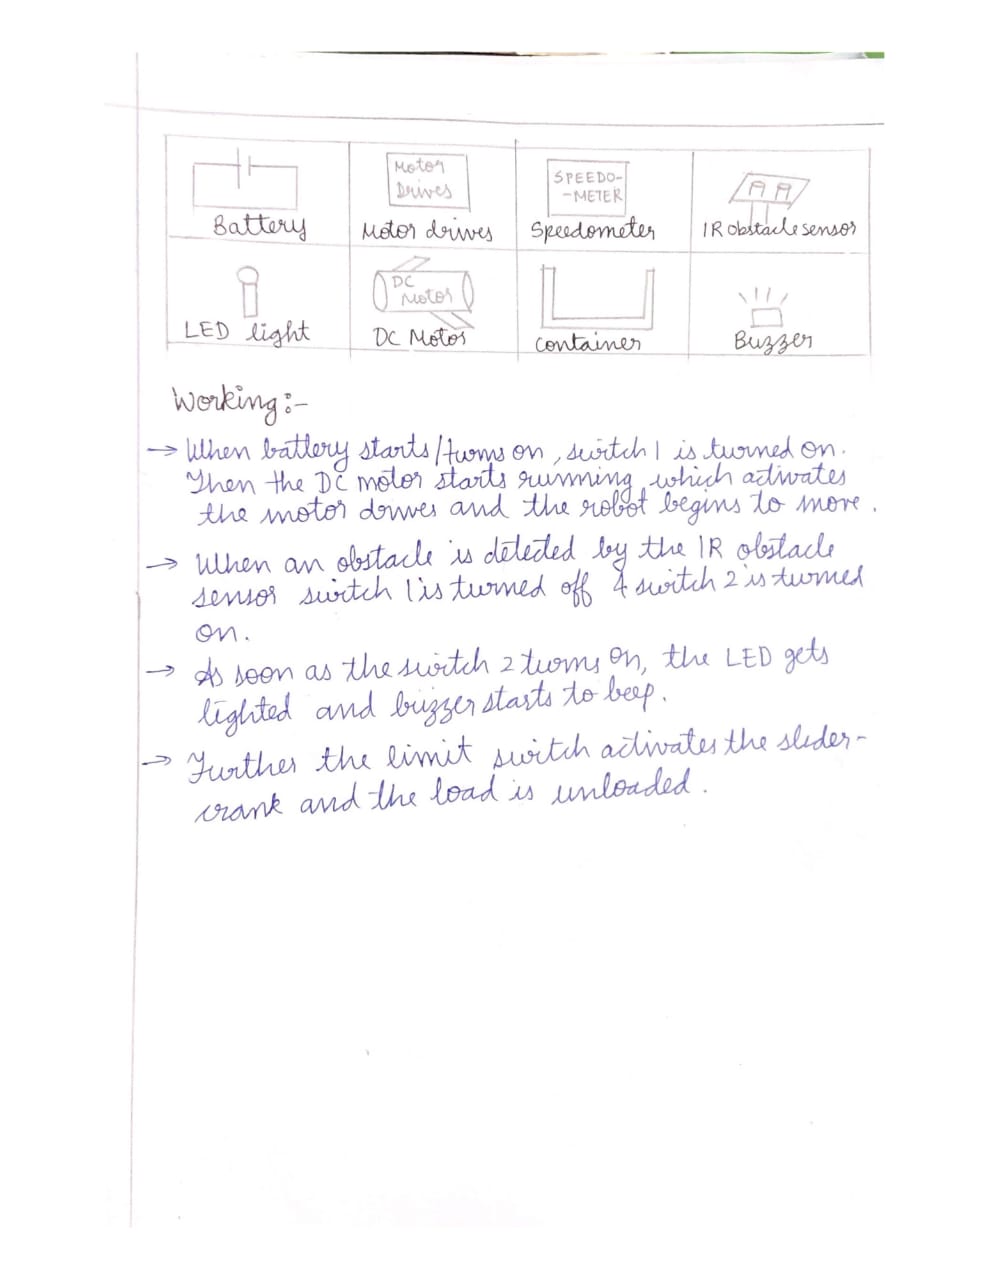 Motor
Drives
SPEEDO-
-METER
Battery
Motor drives
Speedometer
IR obstacle sensor
DC
Motor
LED light
DC Motor
container
Buzzer
Working:-
→ When battery starts/turns on, switch 1 is turned on.
Then the DC motor starts running which activates
the motor drives and the robot begins to move.
→ When an obstacle is detected by the IR obstacle
sensor switch 1 is turned off & switch 2 is turned
on.
→ As soon as the switch 2 turns on, the LED gets
lighted and buzzer starts to beep.
→ Further the limit switch activates the slider-
crank and the load is unloaded.